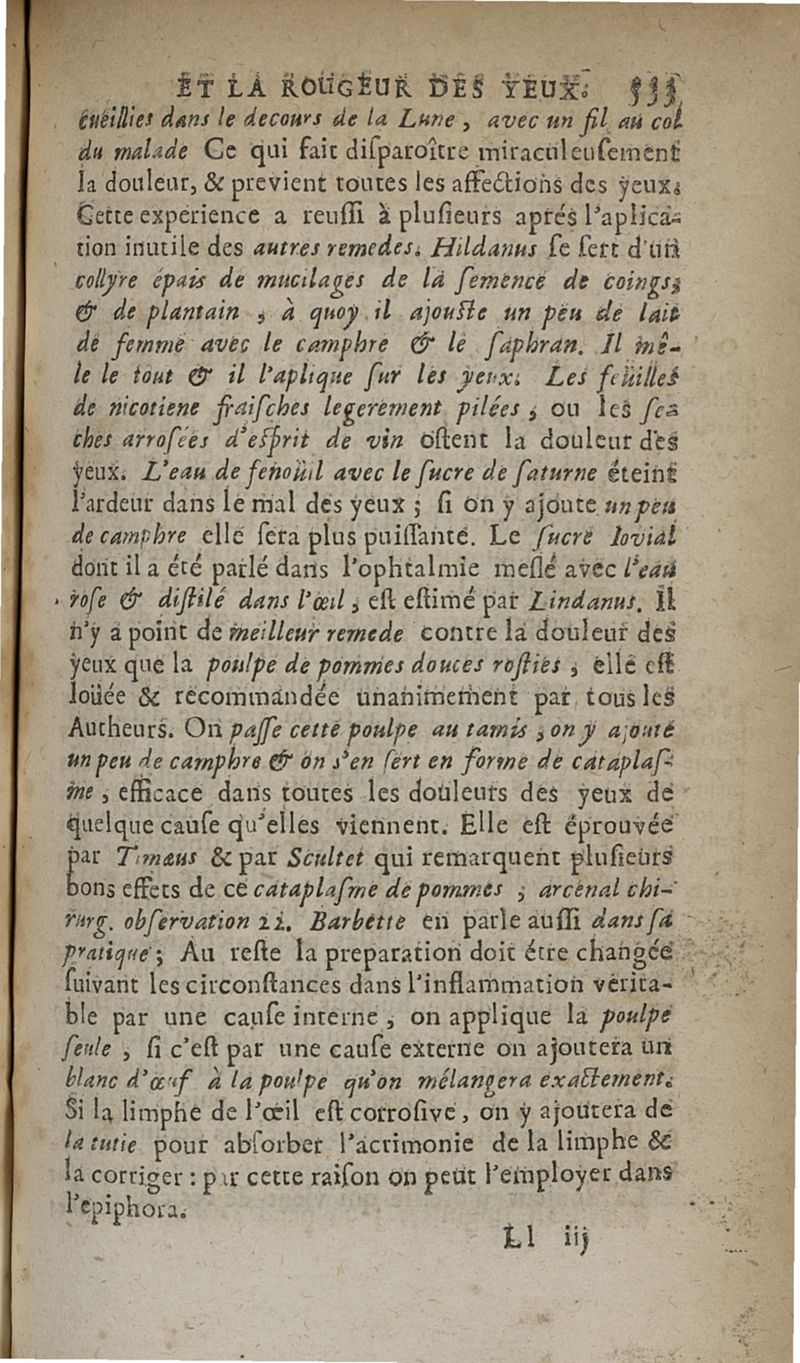 ET LA ROUGEUR DES YEUX. 535
cuëillies dans le decours de la Lune, avec un fil au col
du malade Ce qui fait diſparoître miraculeuſement
la douleur, & previent toutes les affections des yeux.
Cette experience a reuſſi à pluſieurs aprés l'aplica-
tion inutile des autres remedes. Hildanus ſe ſert d'un
collyre épais de mucilages de la ſemence de coings,
& de plantain, à quoy il ajouſte un peu de lait
de femme avec le camphre & le ſaphran. Il mê-
le le tout & il l'aplique ſur les yeux. Les feüilles
de nicotiene fraiſches legerement pilées, ou les ſe-
ches arroſées d'eſprit de vin oſtent la douleur des
yeux. L'eau de fenoüil avec le ſucre de ſaturne éteint
l'ardeur dans le mal des yeux ; ſi on y ajoute un peu
de camphre elle ſera plus puiſſante. Le ſucre Iovial
dont il a été parlé dans l'ophtalmie meſlé avec l'eau
roſe & diſtilé dans l'œil, eſt eſtimé par Lindanus. Il
n'y a point de meilleur remede contre la douleur des
yeux que la poulpe de pommes douces roſties, elle eſt
loüée & recommandée unanimement par tous les
Autheurs. On paſſe cette poulpe au tamis, on y ajoute
un peu de camphre & on s'en ſert en forme de cataplaſ-
me, efficace dans toutes les douleurs des yeux de
quelque cauſe qu'elles viennent. Elle eſt éprouvée
par Timæus & par Scultet qui remarquent pluſieurs
bons effets de ce cataplaſme de pommes, arcenal chi-
rurg. obſervation 22. Barbette en parle auſſi dans ſa
pratique ; Au reſte la preparation doit étre changée
ſuivant les circonſtances dans l'inflammation vérita-
ble par une cauſe interne, on applique la poulpe
ſeule, ſi c'eſt par une cauſe externe on ajoutera un
blanc d'œuf à la poulpe qu'on mélangera exactement.
Si la limphe de l'œil eſt corroſive, on y ajoûtera de
la tutie pour abſorber l'acrimonie de la limphe &
la corriger : par cette raiſon on peut l'employer dans
l'epiphora.
Ll iij